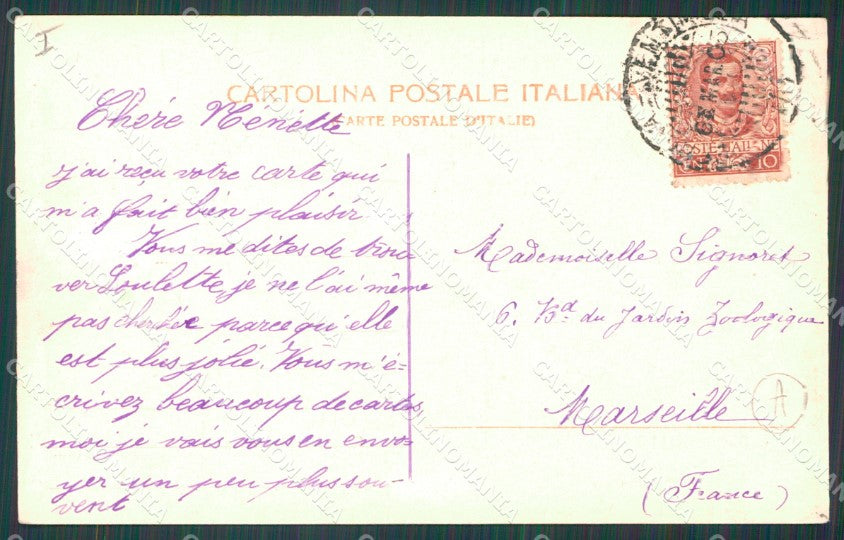 CARTOLINA POSTALE ITALIANA
(CARTE POSTALE D'ITALIE)
Chère Nénette
j'ai reçu votre carte qui
m'a fait bien plaisir
Vous me dites de trou
ver Loulette, je ne l'ai même
pas cherchée parce qu'elle
est plus jolie. Vous m'é=
crivez beaucoup de cartes
moi je vais vous en envo-
yer un peu plus sou-
vent
Mademoiselle Signoret
6. Bd du Jardin Zoologique
Marseille
(France)
A
POSTE ITALIANE
10
CARTOLINOMANIA